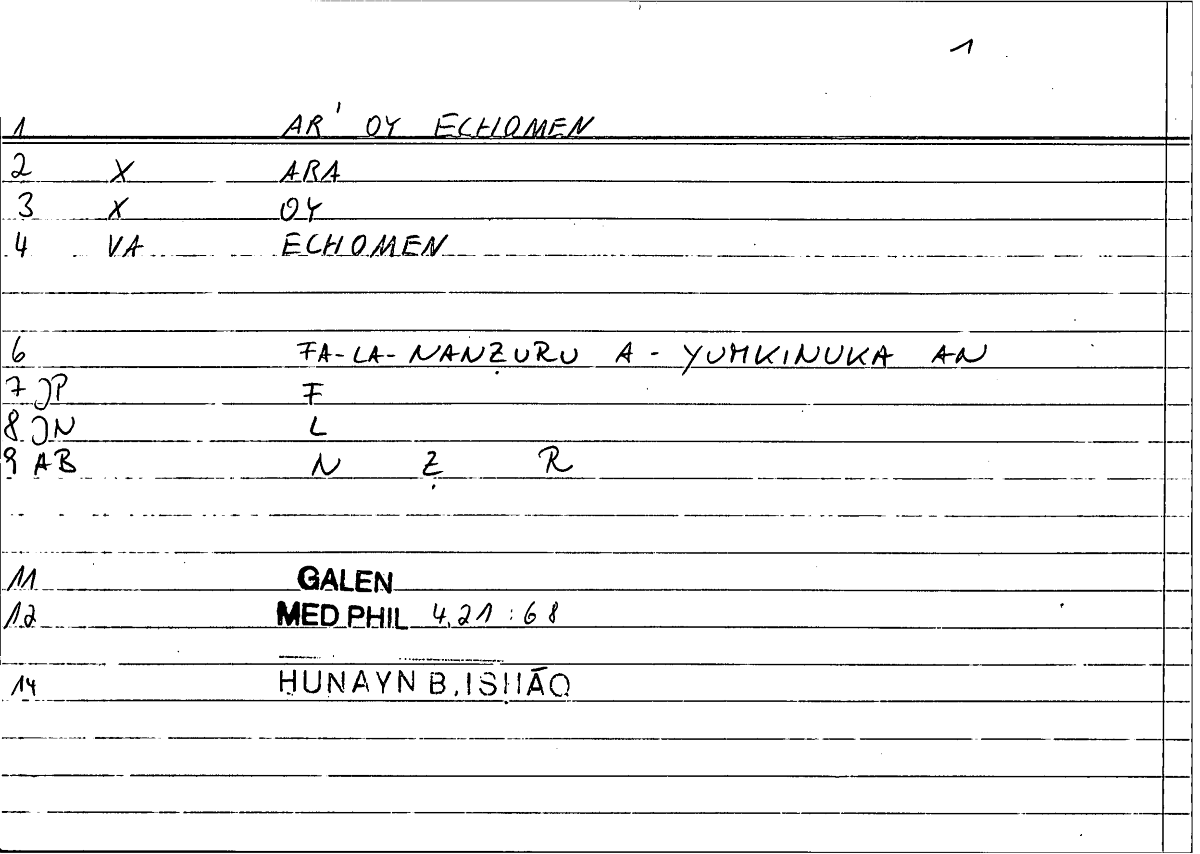 1
1 AR' OY ECHOMEN
2 X ARA
3 X OY
4 VA ECHOMEN
6 FA-LA-NANẒURU A-YUMKINUKA AN
7 JP F
8 JN L
9 AB N Ẓ R
11 GALEN
12 MED PHIL 4,21:68
14 HUNAYN B. ISḤĀQ